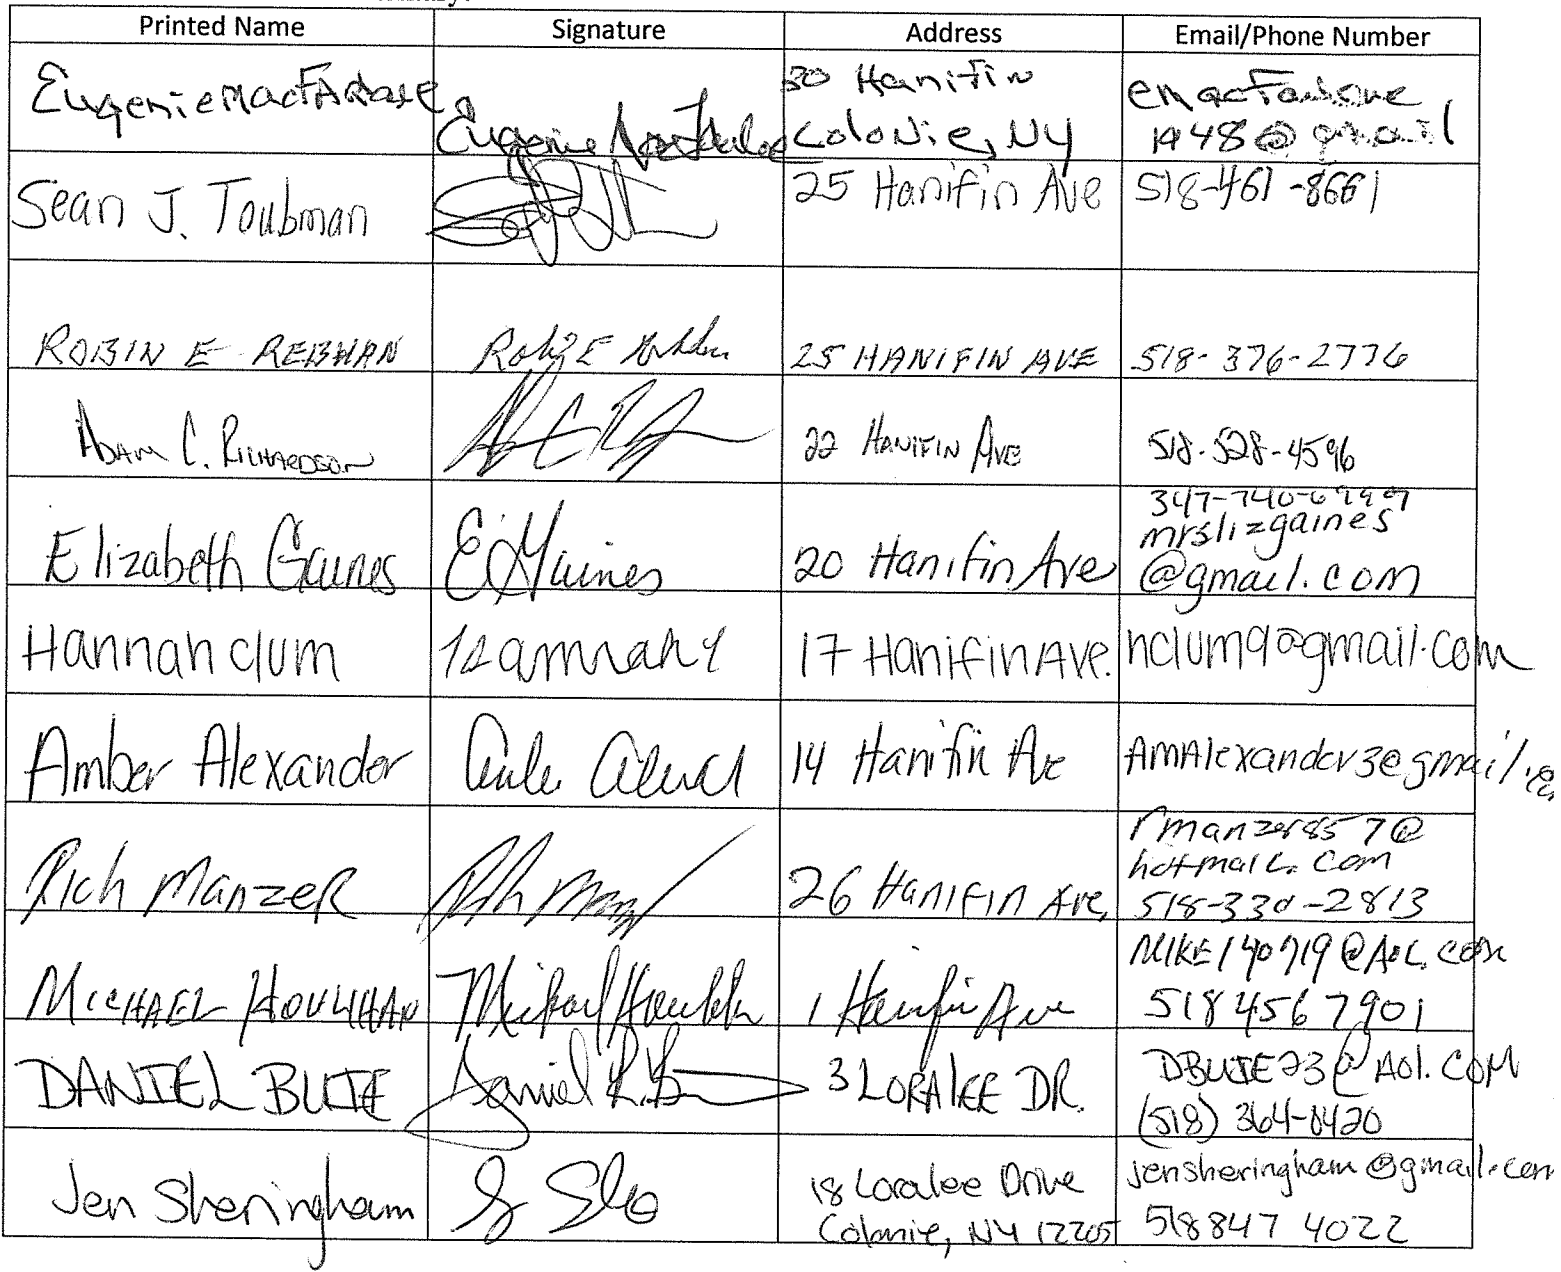 Printed Name Signature Address Email/Phone Number
Eugenie MacFarlane Eugenie 30 Hanifin
Colonie, NY emacfarlane
1948@gmail
Sean J. Toubman 25 Hanifin Ave 518-461-8661
ROBIN E REBHAN Robin E 25 HANIFIN AVE 518-376-2776
ADAM C. RICHARDSON 22 HANIFIN AVE 518-528-4596
347-740-6999
Elizabeth Gaines E Gaines 20 Hanifin Ave mrslizgaines
@gmail.com
Hannah clum 17 Hanifin Ave. hclum9@gmail.com
Amber Alexander 14 Hanifin Ave AMAlexander3@gmail.com
Rich Manzer 26 Hanifin Ave, rmanzer857@
hotmail.com
518-330-2813
MICHAEL HOULIHAN Michael Houlihan 1 Hanifin Ave MIKE140719@AOL.com
518 456 7901
DANIEL BUIE Daniel R. 3 LORALEE DR. DBUIE23@AOl.COM
(518) 364-0420
Jen Sheringham 18 Loralee Drive
Colonie, NY 12205 jensheringham@gmail.com
518 847 4022